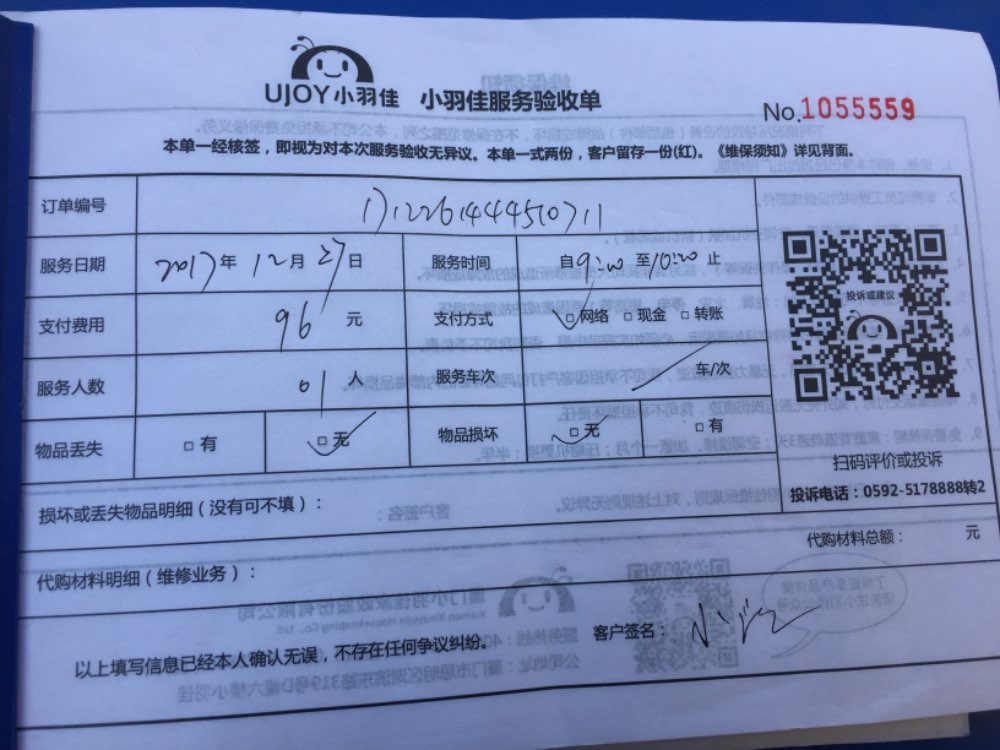 UJOY小羽佳 小羽佳服务验收单
No.1055559
本单一经核签，即视为对本次服务验收无异议。本单一式两份，客户留存一份(红)。《维保须知》详见背面。
订单编号 171226144450711
服务日期 2017年12月27日 服务时间 自9:00至10:00止
支付费用 96元 支付方式 网络 现金 转账
投诉或建议
服务人数 01人 服务车次 车/次
物品丢失 有 无 物品损坏 无 有
扫码评价或投诉
投诉电话：0592-5178888转2
损坏或丢失物品明细（没有可不填）：
代购材料总额： 元
代购材料明细（维修业务）：
客户签名：
以上填写信息已经本人确认无误，不存在任何争议纠纷。